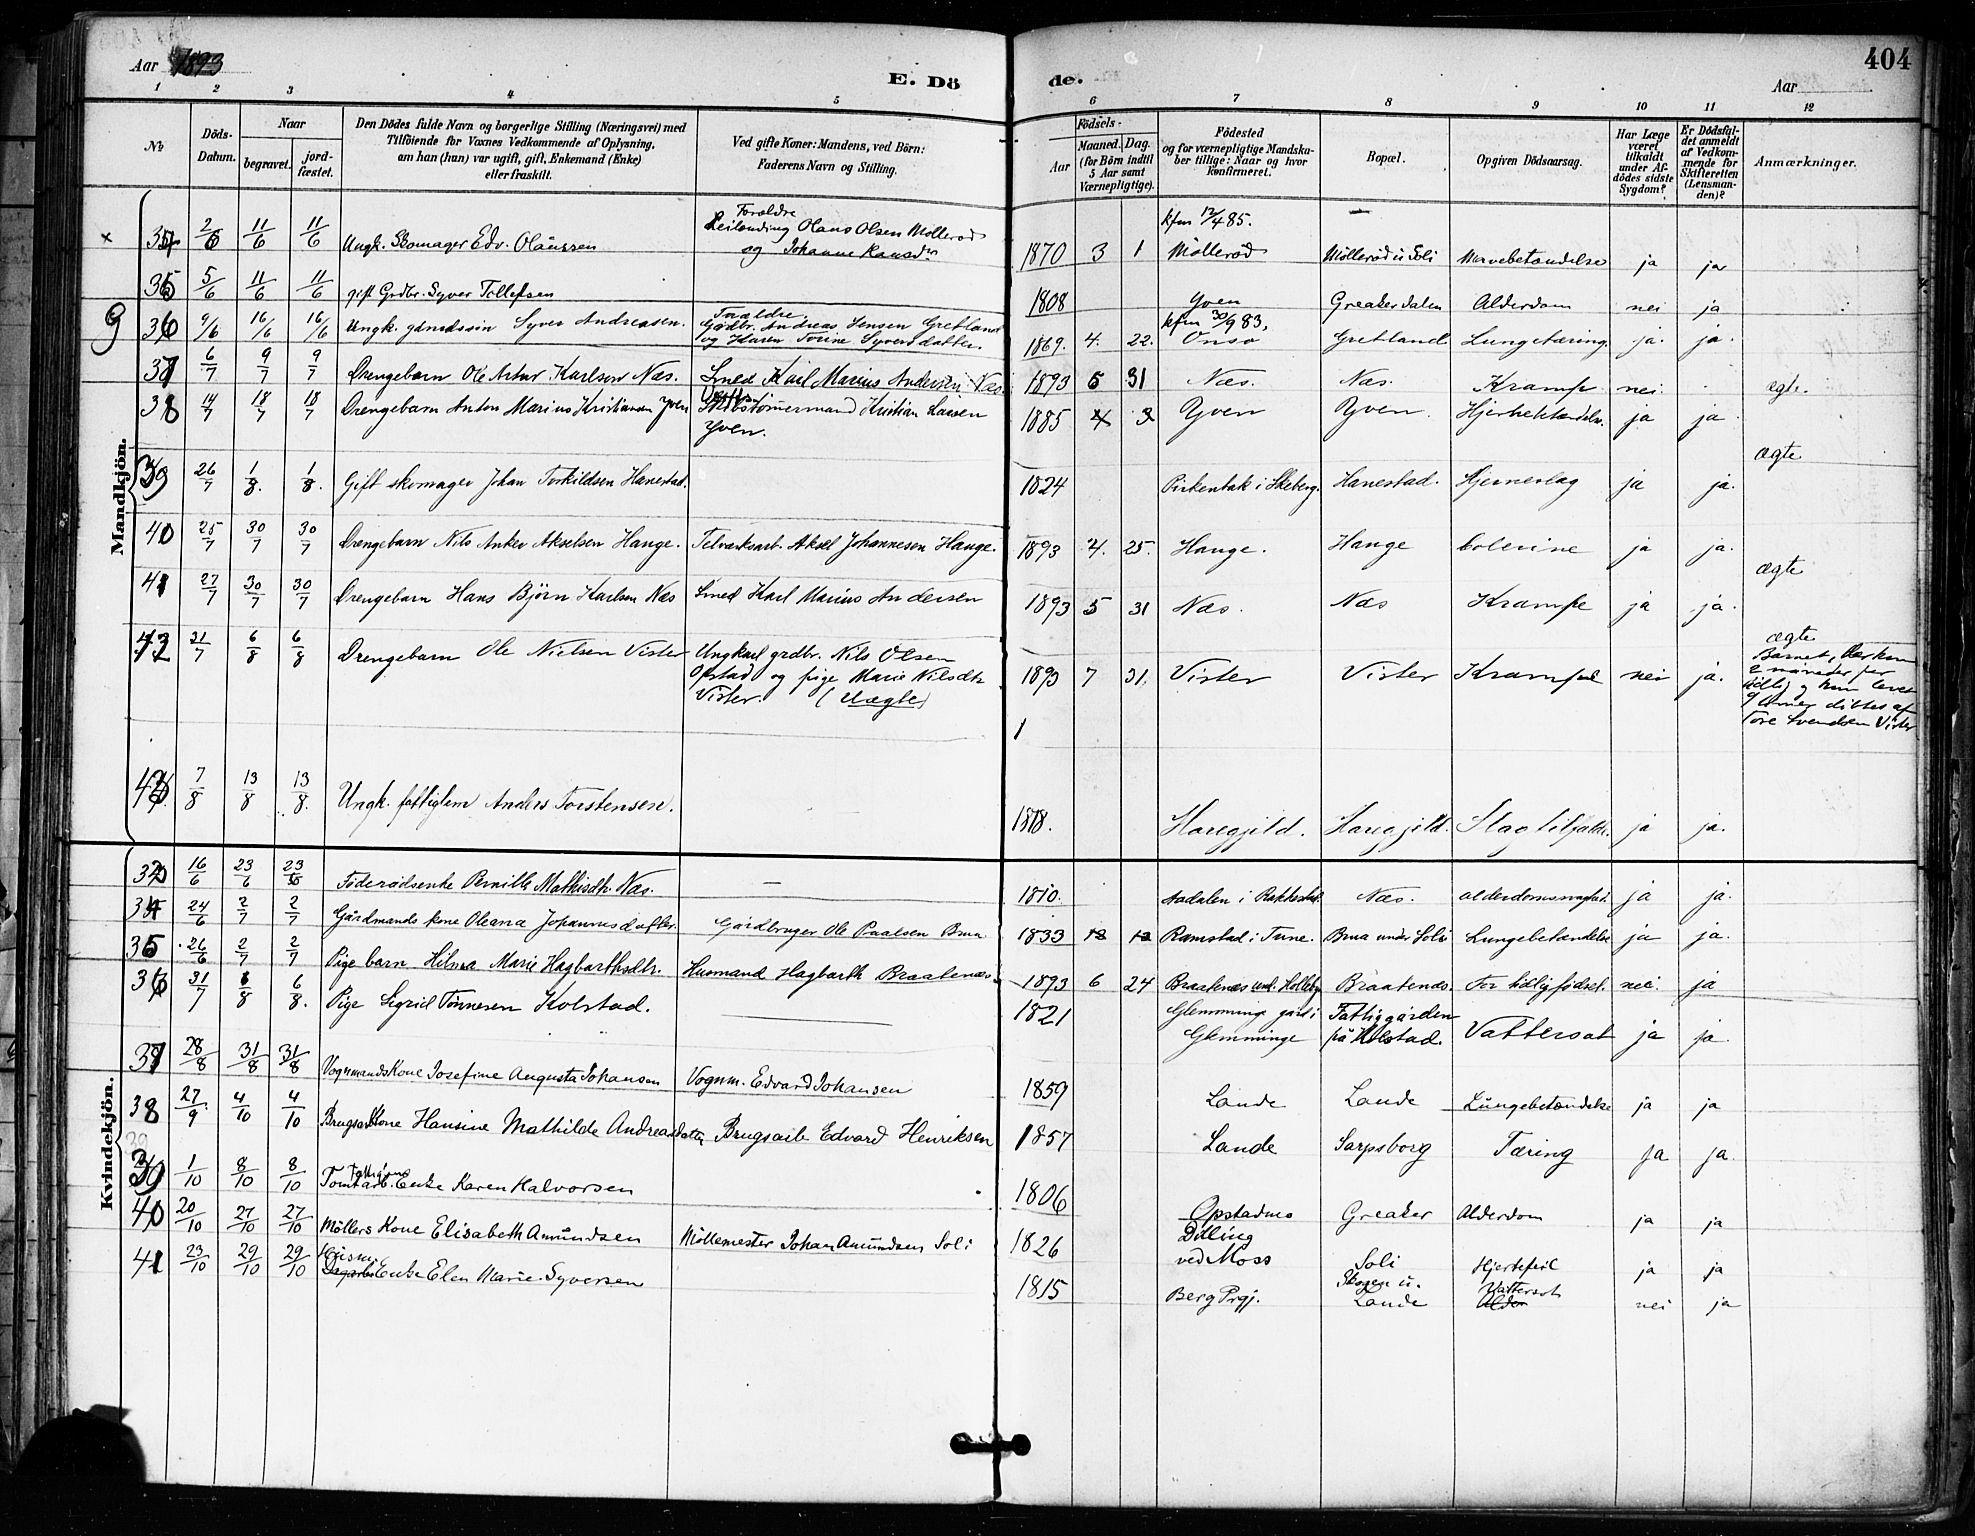 Aar 1893
E. Dö
de.
Aar
404
1 2 3 4 5 6 7 8 9 10 11 12
No
Döds-Datum.
Naar
begravet.
jord-fæstet.
Den Dödes fulde Navn og borgerlige Stilling (Næringsvei) med
Tilföiende for Voxnes Vedkommende af Oplysning,
om han (hun) var ugift, gift, Enkemand (Enke)
eller fraskilt.
Ved gifte Koner: Mandens, ved Börn:
Faderens Navn og Stilling.
Födsels-
Aar
Maaned. Dag.
(for Börn indtil
5 Aar samt
Værnepligtige).
Födested
og for værnepligtige Mandska-
ber tillige: Naar og hvor
konfirmeret.
Bopæl.
Opgiven Dödsaarsag.
Har Læge
været
tilkaldt
under Af-
dödes sidste
Sygdom?
Er Dödsfal-
det anmeldt
af Vedkom-
mende for
Skifteretten
(Lensman-
den)?
Anmærkninger.
Mandkjön.
Forældre kfm 12/4 85.
2/6 11/6 11/6 Ungk. Skomager Edv. Olaussen Leilending Olaus Olsen Möllerød
og Johanne 1870 3 1 Möllerød Möllerød u Soli ja ja
35 5/6 11/6 11/6 gift Grdbr. Syver Tollefsen 1808 Yven Greakerdalen Alderdom nei ja
Foræeldre kfm 30/9 83.
36 9/6 16/6 16/6 Ungk. gaardssön Syver Andreasen. Gaardbr. Andreas Jensen Gretland
og Karen Torine Syversdatter. 1869. 4. 22. Onsö Gretland Lungetæring. ja. ja.
37 6/7 9/7 9/7 Drengebarn Ole Artur Karlsen Næs. Smed Karl Marius Andersen Næs 1893 5 31 Næs. Næs. Krampe nei. ægte.
38 14/7 18/7 18/7 Drengebarn Anton Marius Kristiansen Yven Skibstömmermand Kristian Lassen
Yven. 1885 4 3 Yven Yven. ja ja
ægte
39 26/7 1/8. 1/8. Gift skomager Johan Torkildsen Hanestad. 1824 Pirkentak i Skeberg. Hanestad. Hjerneslag ja ja.
40 25/7 30/7 30/7 Drengebarn Nils Anker Akselsen Hauge. Aksel Johannesen Hauge. 1893 4. 25. Hauge. Hauge Colerine ja ja.
ægte
41 27/7 30/7 30/7 Drengebarn Hans Björn Karlsen Næs Smed Karl Marius Andersen 1893 5 31 Næs. Næs Krampe ja ja.
ægte
42 31/7 6/8 6/8 Drengebarn Ole Nielsen Vister Ungkarl grdbr. Nils Olsen
Opstad og pige Marie Nilsdtr.
Vister. (Uægte) 1893 7 31. Vister Vister Krampe nei ja.
Tore Svendsen Vister
1
43 7/8 13/8 13/8. Ungk. fattiglem Anders Torstensen. 1818. Haregjild. Haregjild. Slagtilfælde. ja ja.
Kvindekjön.
16/6 23/6 23/6 Föderaadsenke Pernille Mathisdtr. Næs. — 1810. Aadalen i Rakkestad. Næs. ja ja.
34 24/6 2/7 2/7 Gårdmands kone Oleana Johannesdatter. Gårdbruger Ole Paulsen Brua 1833 12 12 Ramstad i Tune. Brua under Soli Lungebetændelse ja ja.
35 26/6 2/7 2/7 Pige barn Hilma Marie Hagbarthsdtr. Husmand Hagbarth Braatenæs. 1893 6 24 Braatenæs Braatenæs. For tidlig födsel. nei. ja
36 31/7 6/8 6/8. Pige Sigrid Tönnesen Kolstad. 1821 Glemminge gård i
Glemminge Fattiggården
på Kolstad. Vattersot ja ja.
37 28/8 31/8 31/8 Vognmands Kone Josefine Augusta Johansen Vognm. Edvard Johansen 1859 Lande Lande Lungebetændelse ja ja
38 27/9 4/10 4/10 Kone Hansine Mathilde Andreasdatter Edvard Henriksen 1857 Lande Sarpsborg Tæring ja ja.
39
39 1/10 8/10 8/10 Tomtarb. Enke Karen Halvorsen 1806 Opstadmo Greaker Alderdom ja ja
40 20/10 27/10 27/10 Möllers Kone Elisabeth Amundsen Möllemester Johan Amundsen Soli 1826 Dilling
ved Moss Soli Hjertefeil ja ja
41 23/10 29/10 29/10 Husm. Enke Elen Marie Syversen 1815 Berg Prgj. Skogen u.
Lande Vattersot nei ja